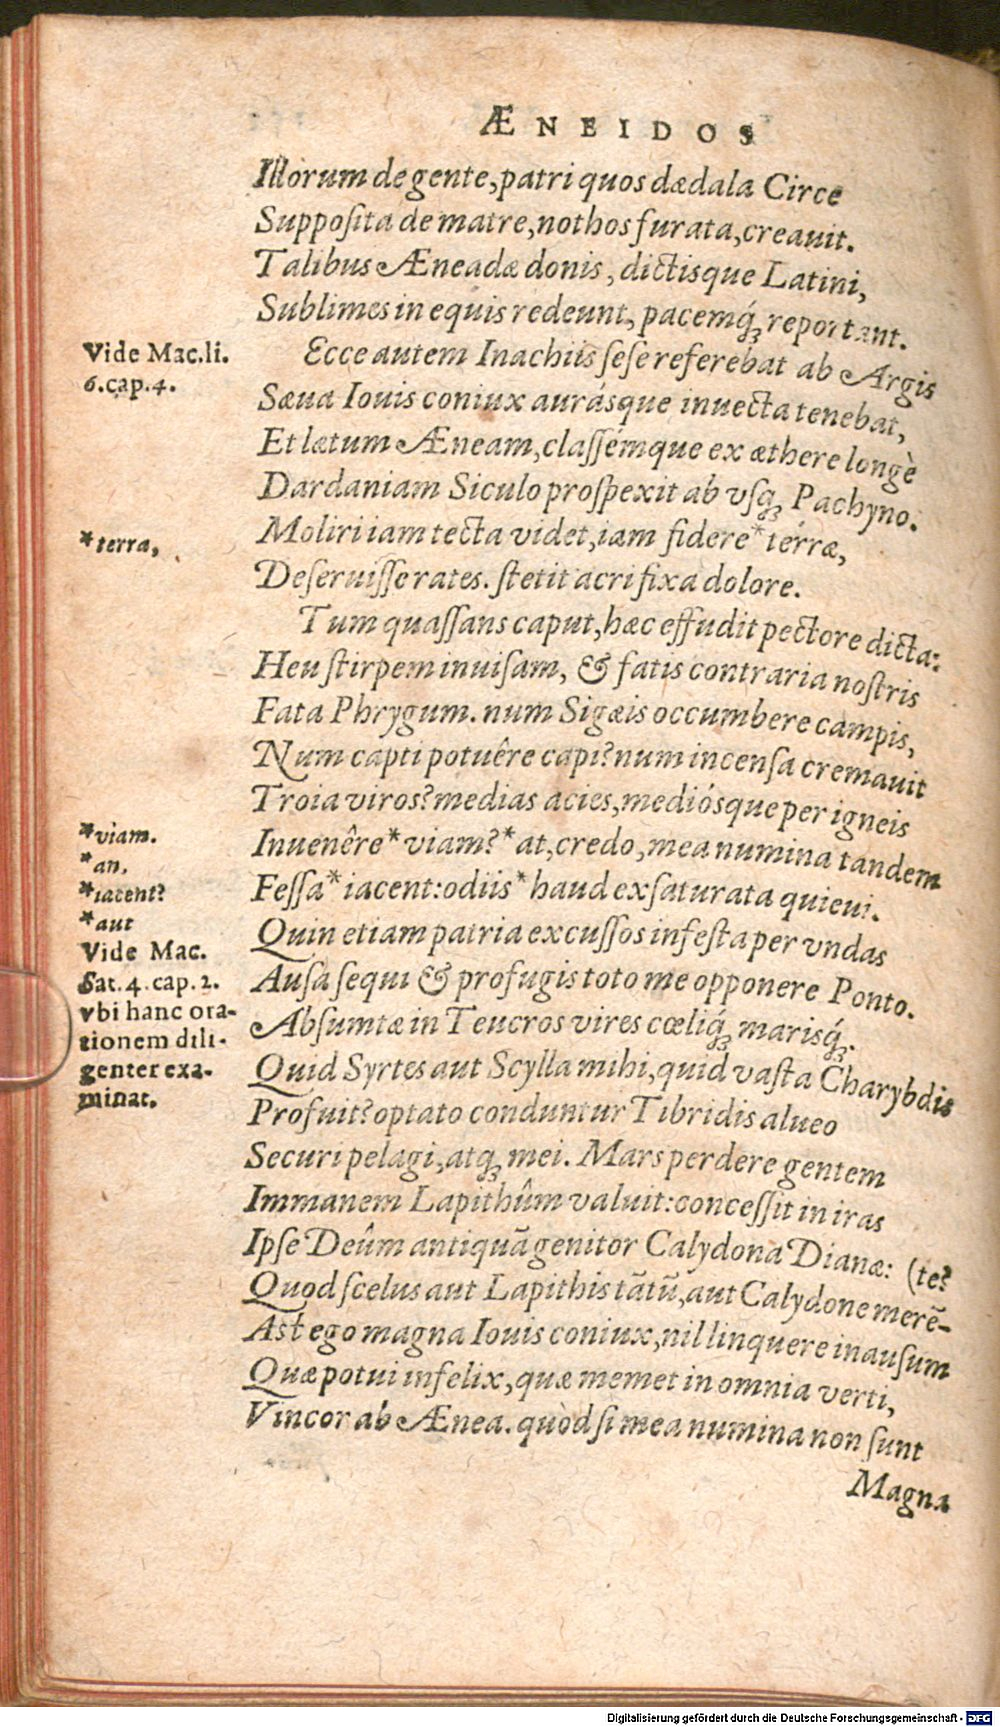 ÆNEIDOS
Illorum de gente, patri quos dædala Circe
Supposita de matre, nothos furata, creauit.
Talibus Æneadæ donis, dictisque Latini,
Sublimes in equis redeunt, pacemq́; reportant.
Vide Mac. li.
6. cap. 4.
Ecce autem Inachiis sese referebat ab Argis
Sæua Iouis coniux aurásque inuecta tenebat,
Et lætum Æneam, classemque ex æthere longè
Dardaniam Siculo prospexit ab vsq; Pachyno.
*terra,
Moliri iam tecta videt, iam fidere *terræ,
Deseruisse rates. stetit acri fixa dolore.
Tum quassans caput, hæc effudit pectore dicta:
Heu stirpem inuisam, & fatis contraria nostris
Fata Phrygum. num Sigæis occumbere campis,
Num capti potuêre capi? num incensa cremauit
Troia viros? medias acies, mediósque per igneis
*viam.
*an,
*iacent?
*aut
Inuenêre *viam? *at, credo, mea numina tandem
Fessa *iacent: odiis *haud exsaturata quieui.
Vide Mac.
Sat. 4. cap. 2.
vbi hanc ora-
tionem dili-
genter exa-
minat.
Quin etiam patria excussos infesta per vndas
Ausa sequi & profugis toto me opponere Ponto.
Absumtæ in Teucros vires cœliq́; marisq́;.
Quid Syrtes aut Scylla mihi, quid vasta Charybdis
Profuit? optato conduntur Tibridis alueo
Securi pelagi, atq; mei. Mars perdere gentem
Immanem Lapithûm valuit: concessit in iras
Ipse Deûm antiquā genitor Calydona Dianæ:
Quod scelus aut Lapithis tātū, aut Calydone merē- (te?
Ast ego magna Iouis coniux, nil linquere inausum
Quæ potui infelix, quæ memet in omnia verti,
Vincor ab Ænea. quòd si mea numina non sunt
Magna
Digitalisierung gefördert durch die Deutsche Forschungsgemeinschaft - DFG